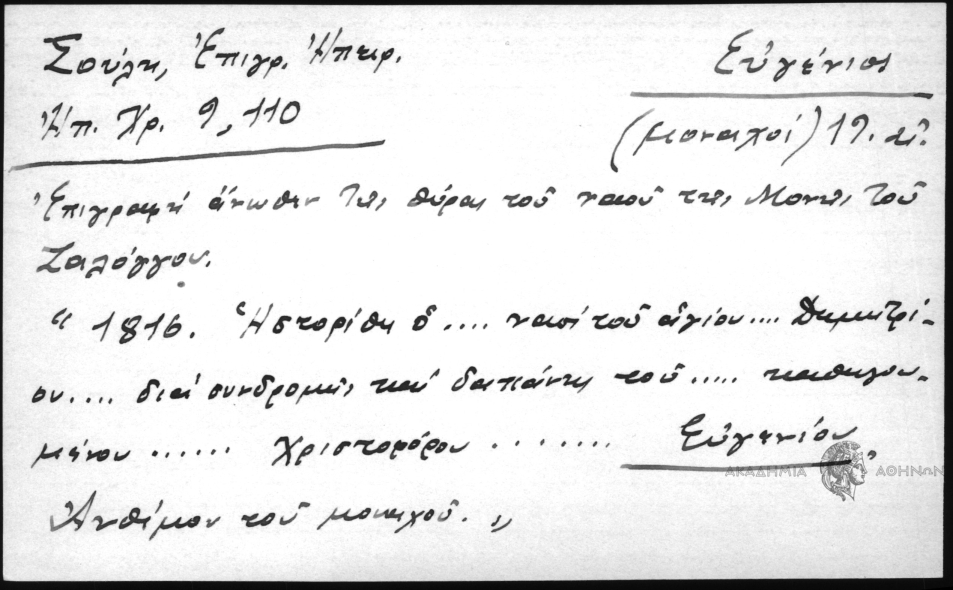 Σούλη, Ἐπιγρ. Ἠπειρ.
Ἠπ. Χρ. 9, 110
Εὐγένιος
(μοναχοί) 19. αἰ.
Ἐπιγραφή ἄνωθεν τῆς θύρας τοῦ ναοῦ τῆς Μονῆς τοῦ
Ζαλόγγου.
" 1816. Ἡστορίθη ὁ .... ναός τοῦ ἁγίου .... Δημητρί-
ου .... διά συνδρομῆς καί δαπάνης τοῦ ..... καθηγου-
μένου ...... Χριστοφόρου ........ Εὐγενίου,
Ἀνθίμου τοῦ μοναχοῦ. „
ΑΚΑΔΗΜΙΑ ΑΘΗΝΩΝ